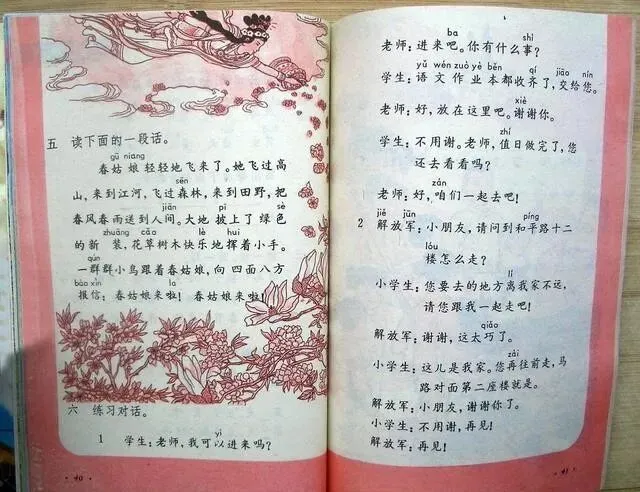 五 读下面的一段话。
gū niang
春姑娘轻轻地飞来了。她飞过高
sēn
山，来到江河，飞过森林，来到田野，把
jiān pī sè
春风春雨送到人间。大地披上了绿色
zhuāng cǎo lè huī
的新装，花草树木快乐地挥着小手。
qún
一群群小鸟跟着春姑娘，向四面八方
bào xìn la
报信：春姑娘来啦！春姑娘来啦！
六 练习对话。
yǐ
1 学生：老师，我可以进来吗？
· 40 ·
ba shì
老师：进来吧。你有什么事？
yǔ wén zuò yè běn qí jiāo nín
学生：语文作业本都收齐了，交给您。
xiè
老师：好，放在这里吧。谢谢你。
zhí
学生：不用谢。老师，值日做完了，您
还去看看吗？
zán
老师：好，咱们一起去吧！
jiě jūn píng
2 解放军：小朋友，请问到和平路十二
lóu
楼怎么走？
lí
小学生：您要去的地方离我家不远，
请您跟我一起走吧！
qiǎo
解放军：谢谢，这太巧了。
zài
小学生：这儿是我家。您再往前走，马
路对面第二座楼就是。
解放军：小朋友，谢谢你了。
小学生：不用谢，再见！
解放军：再见！
· 41 ·